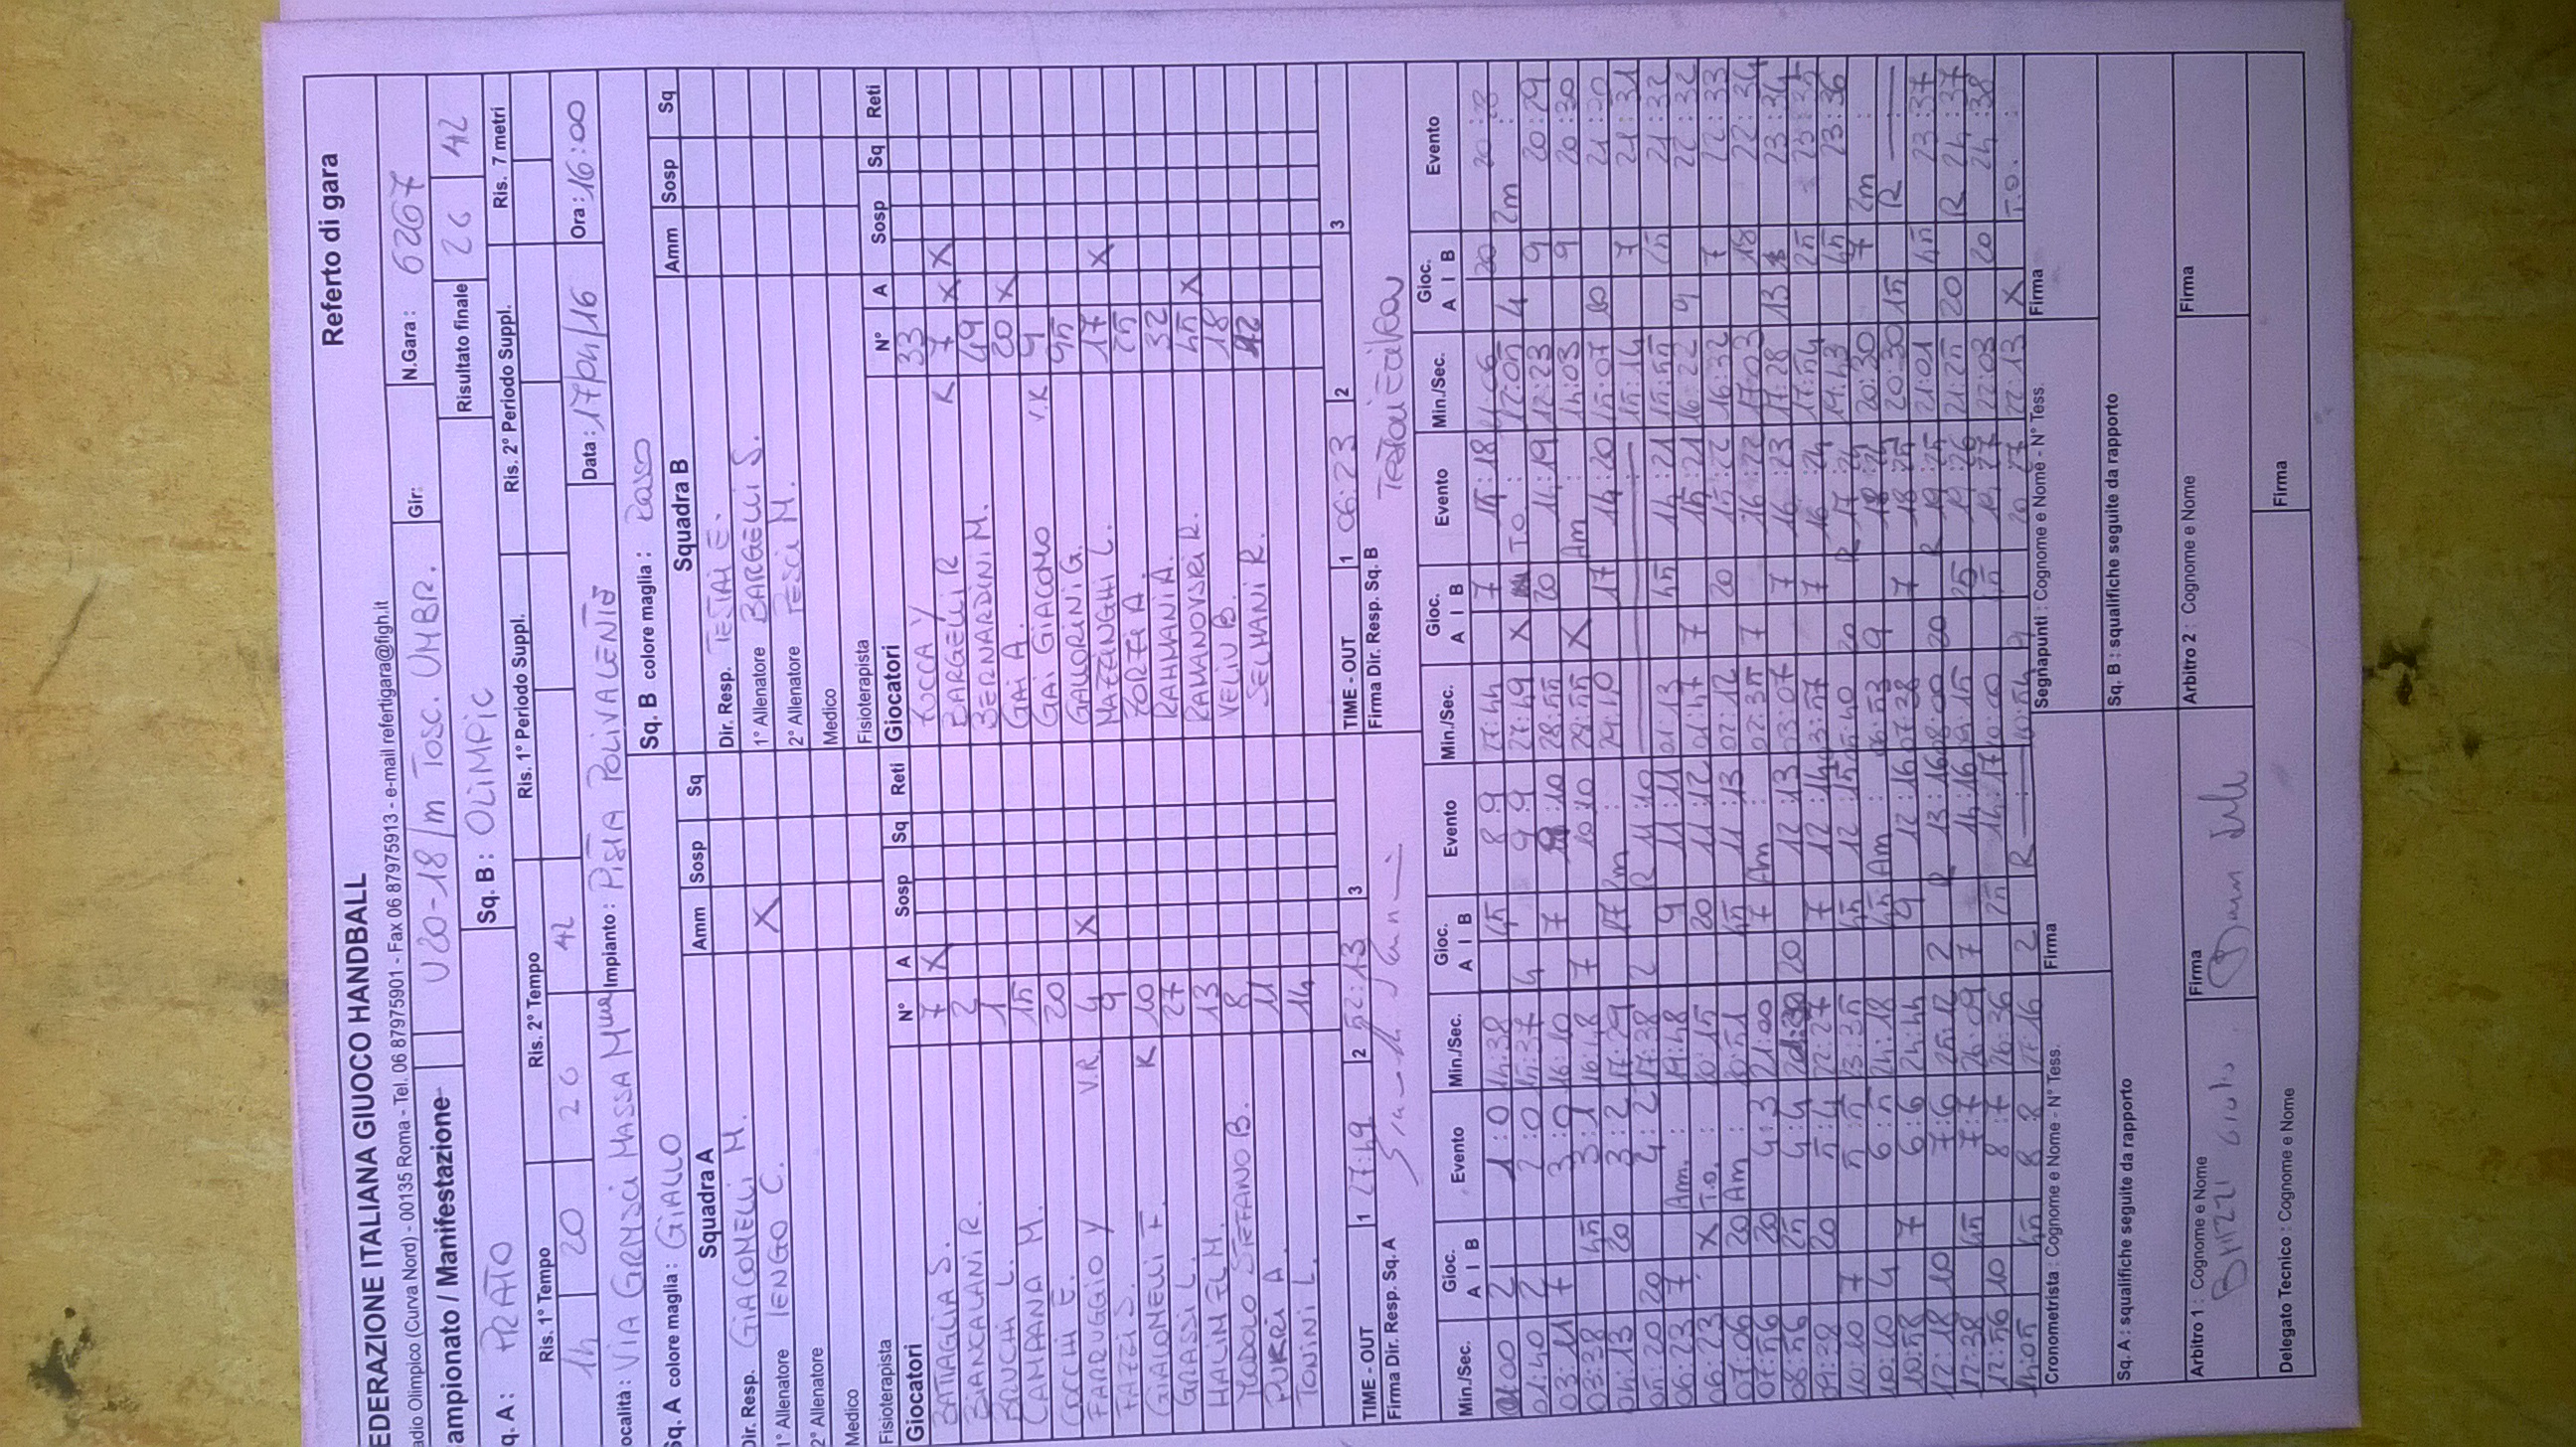 FEDERAZIONE ITALIANA GIUOCO HANDBALL
Referto di gara
adio Olimpico (Curva Nord) - 00135 Roma - Tel. 06 87975901 - Fax 06 87975913 - e-mail refertigara@figh.it
ampionato / Manifestazione U20-18/m TOSC. UMBR. Gir: N.Gara: 6267
q. A: PRATO Sq. B: OLIMPIC Risultato finale 26 42
Ris. 1° Tempo Ris. 2° Tempo Ris. 1° Periodo Suppl. Ris. 2° Periodo Suppl. Ris. 7 metri
14 20 26 42
ocalità: VIA GRAMSCI MASSA Impianto: PISTA POLIVALENTE Data: 17/04/16 Ora: 16:00
Sq. A colore maglia: GIALLO Sq. B colore maglia: ROSSO
Squadra A Amm Sosp Sq
Dir. Resp. GIACOMELLI M.
1° Allenatore IENGO C. X
2° Allenatore
Medico
Fisioterapista
Giocatori N° A Sosp Sq Reti
BATTAGLIA S. 7 X
BIANCALANI R. 2
BRUCHI L. 1
CAMPANA M. 15
COCCHI E. 20
FARRUGGIO Y V.R. 4 X
FAZZI S. 9
GIACOMELLI F. K 10
GRASSI L. 27
HALIM EL M. 13
STEFANO B. 8
PUKRI A. 11
TONINI L. 14
TIME - OUT 1 27:49 2 52:13 3
Firma Dir. Resp. Sq. A
Squadra B Amm Sosp Sq
Dir. Resp. TESTAI E.
1° Allenatore BARGELLI S.
2° Allenatore PESCI M.
Medico
Fisioterapista
Giocatori N° A Sosp Sq Reti
ZOCCA Y 33
BARGELLI R K 7 X X
BERNARDINI M. 49
GAI A. 20 X
GAI GIACOMO V.K 9
GALLORINI G. 95
MAZZINGHI L. 17 X
ZORZI A. 25
RAHMANI A. 32
RAMANOVSKI R. 45 X
VELIU B. 18
SELMANI R.
TIME - OUT 1 06:23 2 3
Firma Dir. Resp. Sq. B
Min./Sec. Gioc. A I B Evento Min./Sec. Gioc. A I B Evento Min./Sec. Gioc. A I B Evento Min./Sec. Gioc. A I B Evento
01:00 2 1:0
01:40 2 2:0
03:11 7 3:0
03:38 45 3:1
04:13 20 3:2
05:20 20 4:2
06:23 7 Am.
06:23 X T.O.
07:06 20 Am
07:56 20 4:3
08:56 25 4:4
09:28 20 5:4
10:10 7 5:5
10:40 4 6:5
10:58 7 6:6
12:18 10 7:6
12:38 45 7:7
12:56 10 8:7
14:05 45 8:8
14:38 45 8:9
15:37 4 9:9
16:10 7 9:10
16:48 7 10:10
17:29 17 2m
17:38 2 R 11:10
19:48 9 11:11
20:15 20 11:12
20:51 45 11:13
21:00 7 Am
20 12:13
22:27 7 12:14
23:35 45 12:15
24:18 45 Am
24:44 9 12:16
25:12 2 R 13:16
26:09 7 14:16
26:36 25 14:17
27:16 2 R
27:44 7 14:18
27:49 X T.O.
28:55 20 14:19
28:55 X Am
29:40 17 14:20
01:13 45 14:21
01:47 7 15:21
02:12 20 15:22
02:35 7 16:22
03:07 7 16:23
3:57 7 16:24
05:40 20 R 17:24
06:53 9 18:24
07:28 7 18:25
08:00 20 R 19:25
09:15 25 19:26
10:00 19:27
10:54 20:27
11:06 20 20:28
12:05 4 2m
12:23 9 20:29
14:03 9 20:30
15:07 20 21:30
15:14 7 21:31
15:55 25 21:32
16:22 9 22:32
16:32 7 22:33
17:03 18 22:34
17:28 13 23:34
17:54 25 23:35
19:43 45 23:36
20:30 7 2m
20:30 15 R
21:01 45 23:37
21:25 20 R 24:37
22:03 20 24:38
22:13 X T.O.
Cronometrista : Cognome e Nome - N° Tess. Firma Segnapunti : Cognome e Nome - N° Tess. Firma
Sq. A : squalifiche seguite da rapporto Sq. B : squalifiche seguite da rapporto
Arbitro 1 : Cognome e Nome Firma Arbitro 2 : Cognome e Nome Firma
Delegato Tecnico : Cognome e Nome Firma